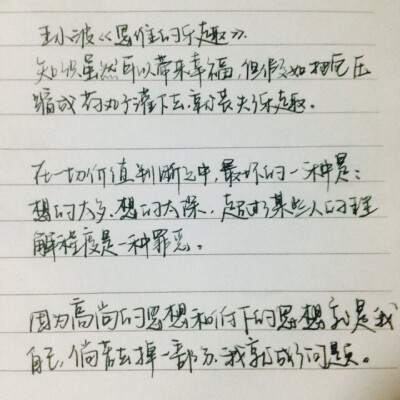 王小波《思维的乐趣》.
知识虽然可以带来幸福,但假如把它压
缩成药丸子灌下去,就丧失了乐趣。
在一切价值判断之中,最坏的一种是:
想的太多、想的太深、超过了某些人的理
解程度是一种罪恶。
因为高尚的思想和低下的思想就是我
自己,倘若去掉一部分,我就成了问题。